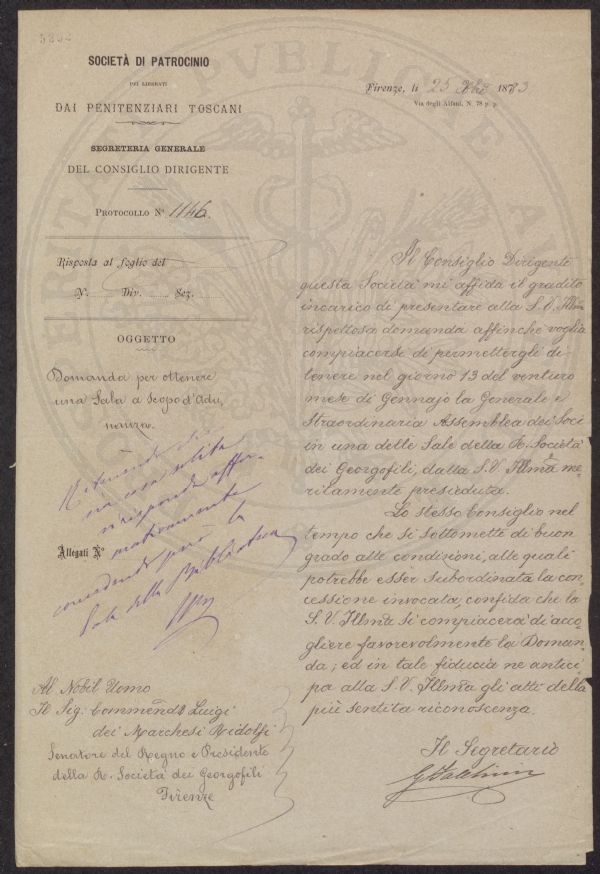 SOCIETÀ DI PATROCINIO
PEI LIBERATI
DAI PENITENZIARI TOSCANI
SEGRETERIA GENERALE
DEL CONSIGLIO DIRIGENTE
PROTOCOLLO N° 1146.
Risposta al foglio del
N. Div. Sez.
OGGETTO
Domanda per ottenere
una Sala a scopo d'adu,
nanza.
Ritenendo
una cosa solita
si risponde affer-
mativamente
concedendo però la
Sala della Biblioteca
Allegati N°
Al Nobil Uomo
Il Sig: Commend: Luigi
dei Marchesi Ridolfi
Senatore del Regno e Presidente
della R. Società dei Georgofili
Firenze
Firenze, li 25 Xbre 1883
Via degli Alfani, N. 78 p. p.
Il Consiglio Dirigente
questa Società mi affida il gradito
incarico di presentare alla S. V. Illma
rispettosa domanda affinchè voglia
compiacersi di permettergli di
tenere nel giorno 13 del venturo
mese di Gennajo la Generale e
Straordinaria Assemblea dei Soci
in una delle Sale della R. Società
dei Georgofili, dalla S. V. Illma me,
ritamente presieduta.
Lo stesso Consiglio nel
tempo che si sottomette di buon
grado alle condizioni, alle quali
potrebbe esser subordinata la con,
cessione invocata, confida che la
S. V. Illma si compiacerà di acco,
gliere favorevolmente la Doman,
da; ed in tale fiducia ne antici
pa alla S. V. Illma gli atti della
più sentita riconoscenza.
Il Segretario